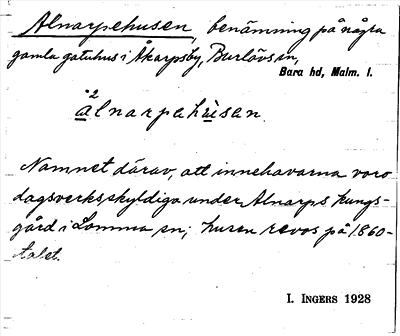 Alnarpehusen benämning på några
gamla gatuhus i Åkarpsby, Burlövs sn,
Bara hd, Malm. l.
å²lnarpahùsan.
Namnet därav, att innehavarna voro
dagsverksskyldiga under Alnarps kungs-
gård i Lomma sn; husen revos på 1860-
talet.
I. INGERS 1928